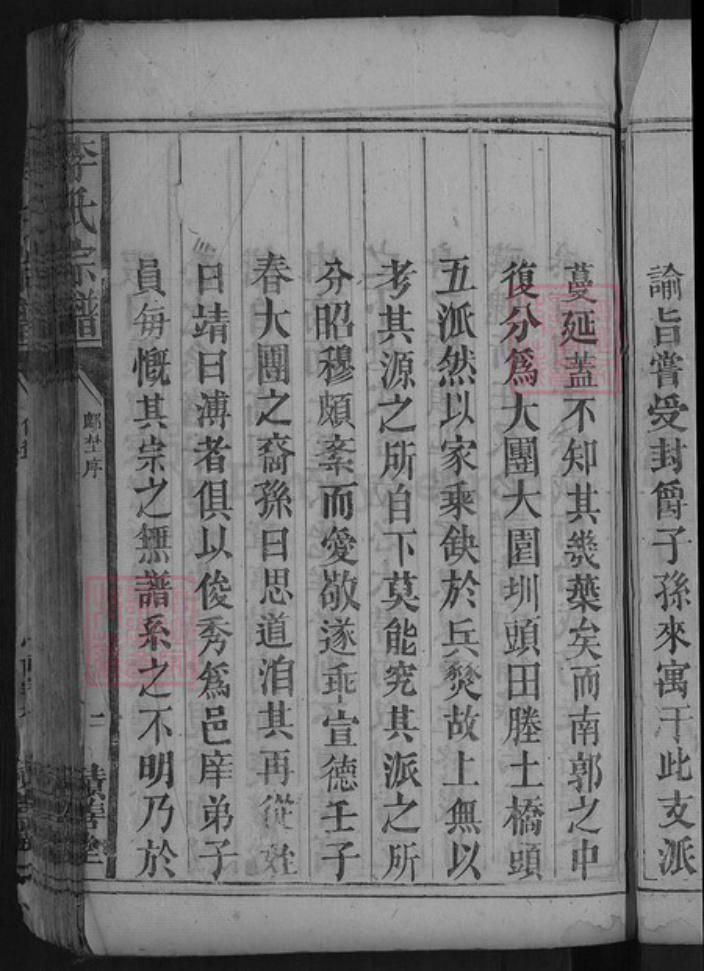 諭旨嘗受封爵子孫來寓于此支派
蔓延蓋不知其幾葉矣而南郭之中
復分為大團大園圳頭田塍土橋頭
五派然以家乘缺於兵燹故上無以
考其源之所自下莫能究其派之所
分昭穆頗紊而愛敬遂乖宣德壬子
春大團之裔孫曰思道洎其再從姪
曰靖曰溥者俱以俊秀為邑庠弟子
員每慨其宗之無譜系之不明乃於
李氏宗譜
序
二